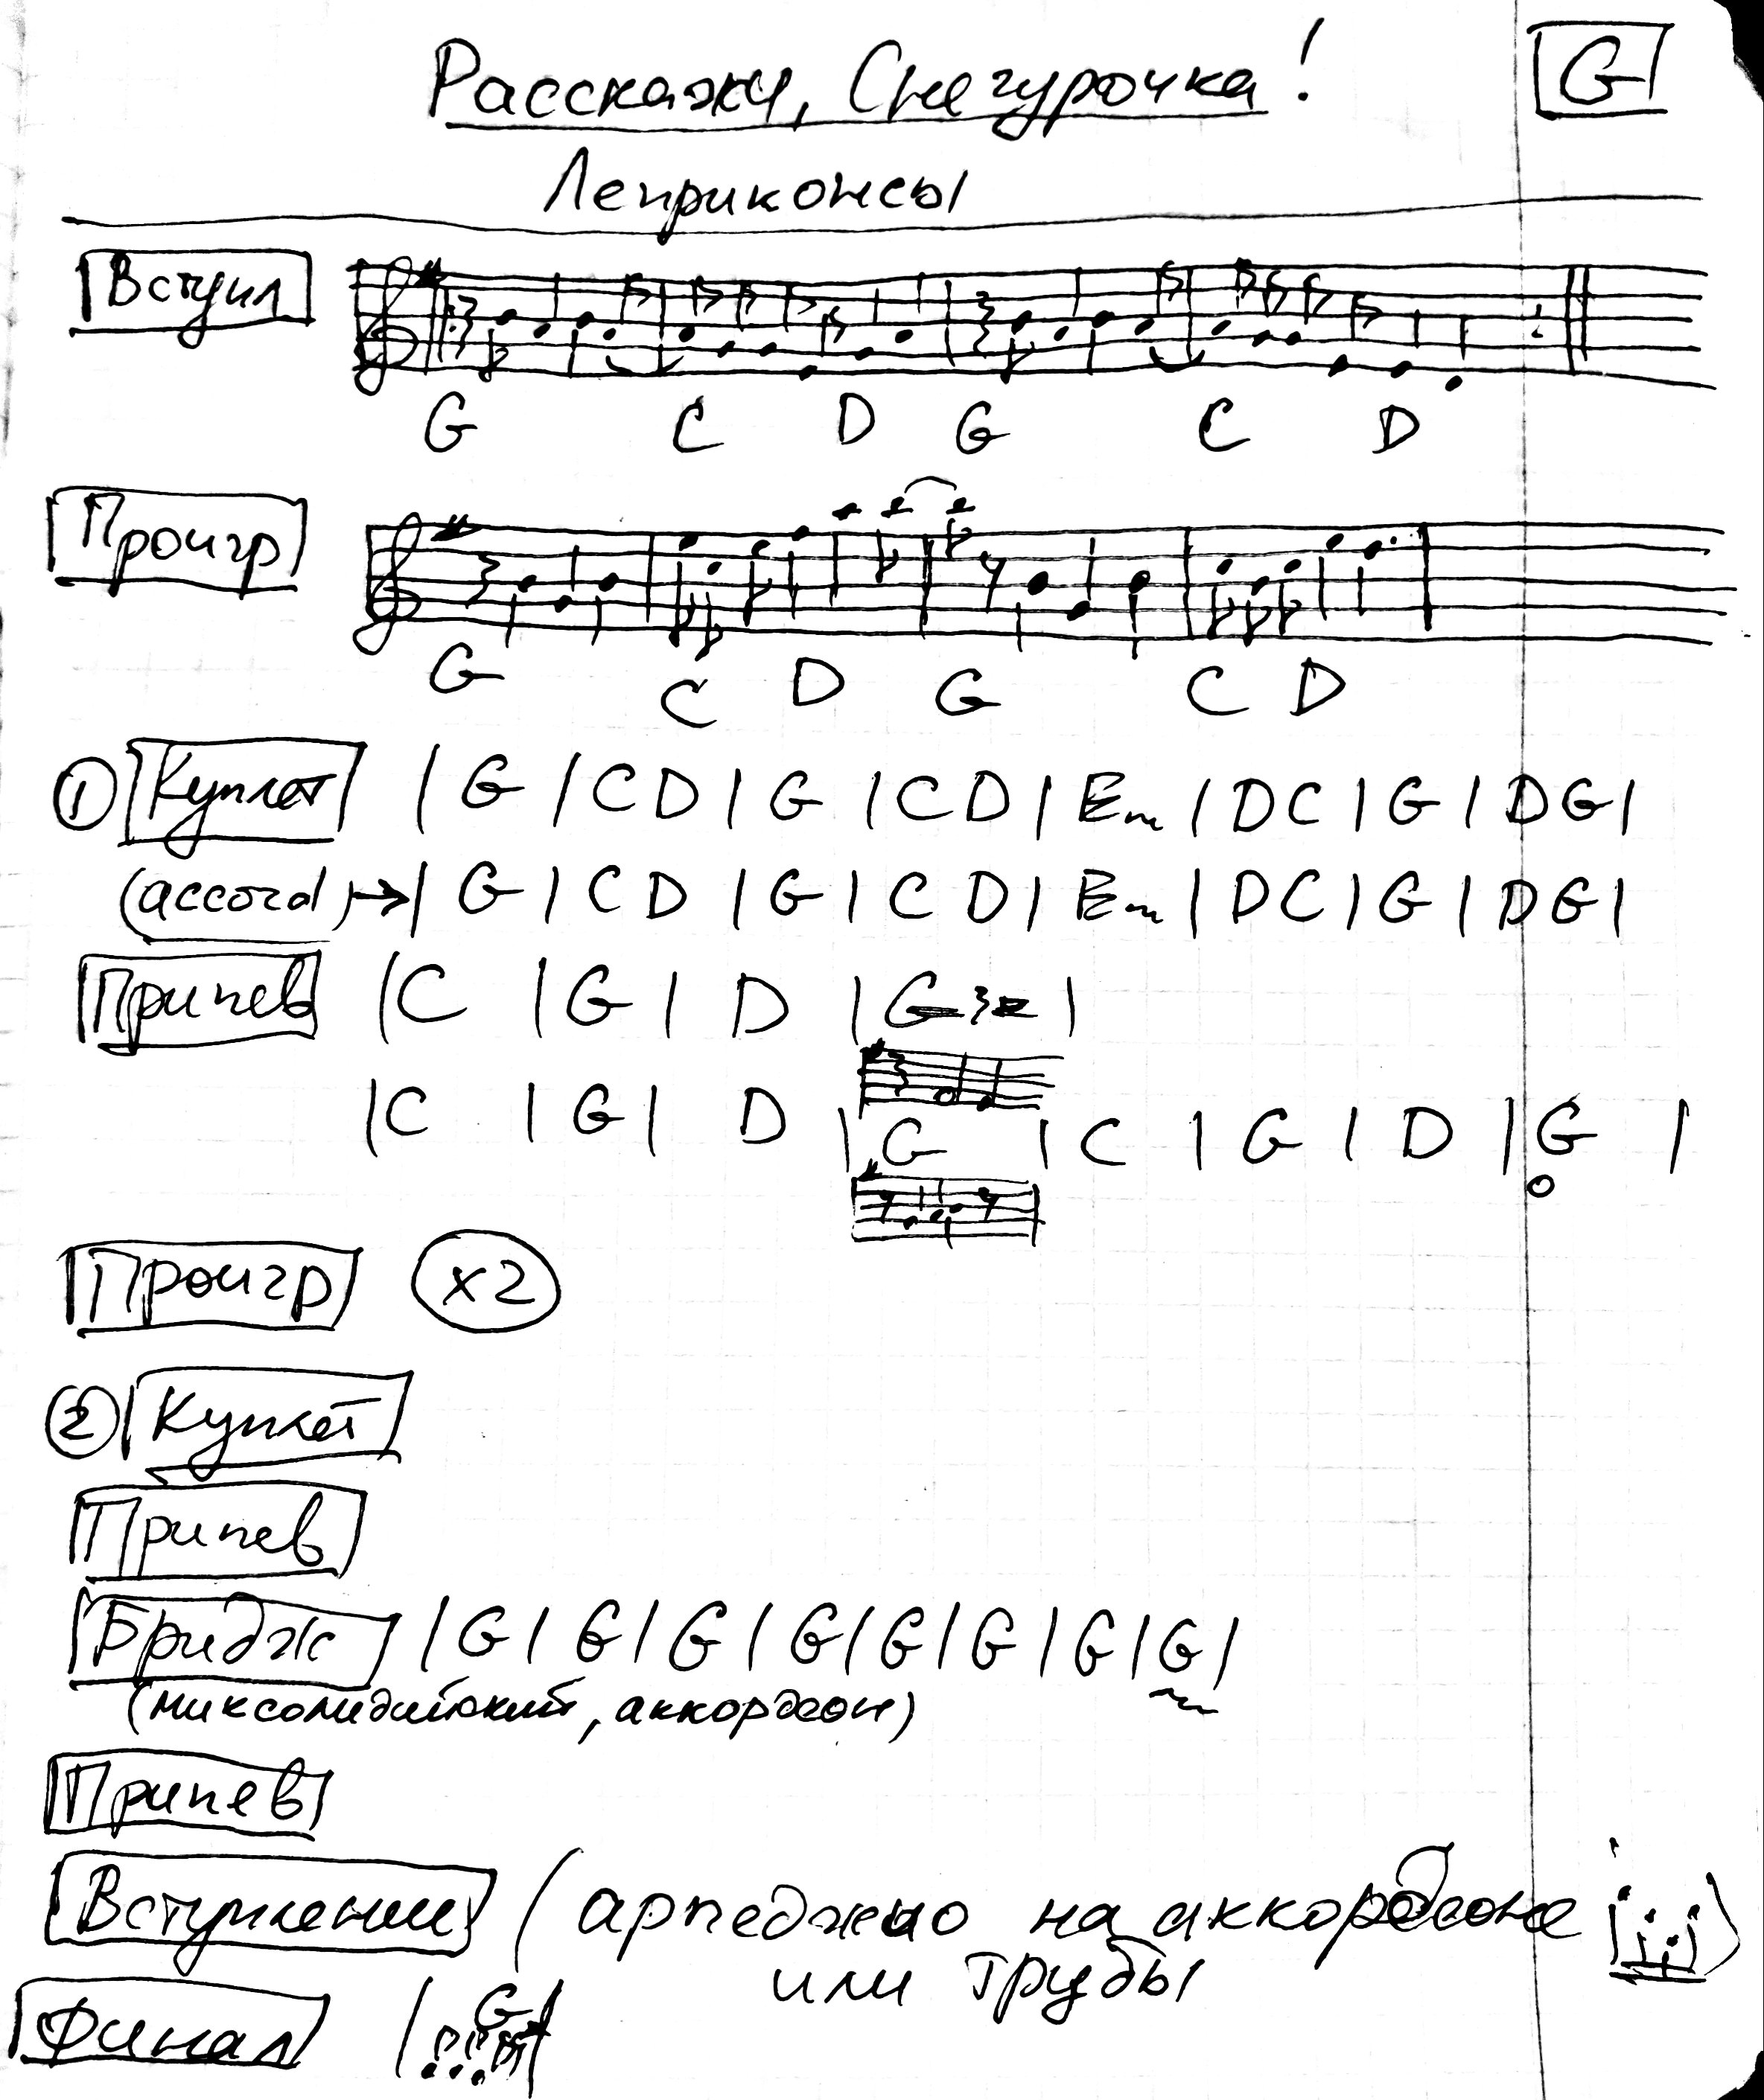 Расскажи, Снегурочка! G
Леприконсы
Вступл
G C D G C D
Проигр
G C D G C D
① Куплет | G | C D | G | C D | Em | D C | G | D G |
(accord) → | G | C D | G | C D | Em | D C | G | D G |
Припев | C | G | D | G |
| C | G | D | G | C | G | D | G |
Проигр x2
② Куплет
Припев
Бридж | G | G | G | G | G | G | G | G |
(миксолидийский, аккордеон)
Припев
Вступление (арпеджио на аккордеоне
или трубы )
Финал | G |